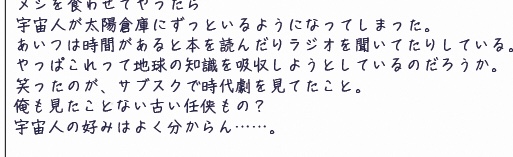 メシを食わせてやったら
宇宙人が太陽倉庫にずっといるようになってしまった。
あいつは時間があると本を読んだりラジオを聞いてたりしている。
やっぱこれって地球の知識を吸収しようとしているのだろうか。
笑ったのが、サブスクで時代劇を見てたこと。
俺も見たことない古い任侠もの？
宇宙人の好みはよく分からん……。